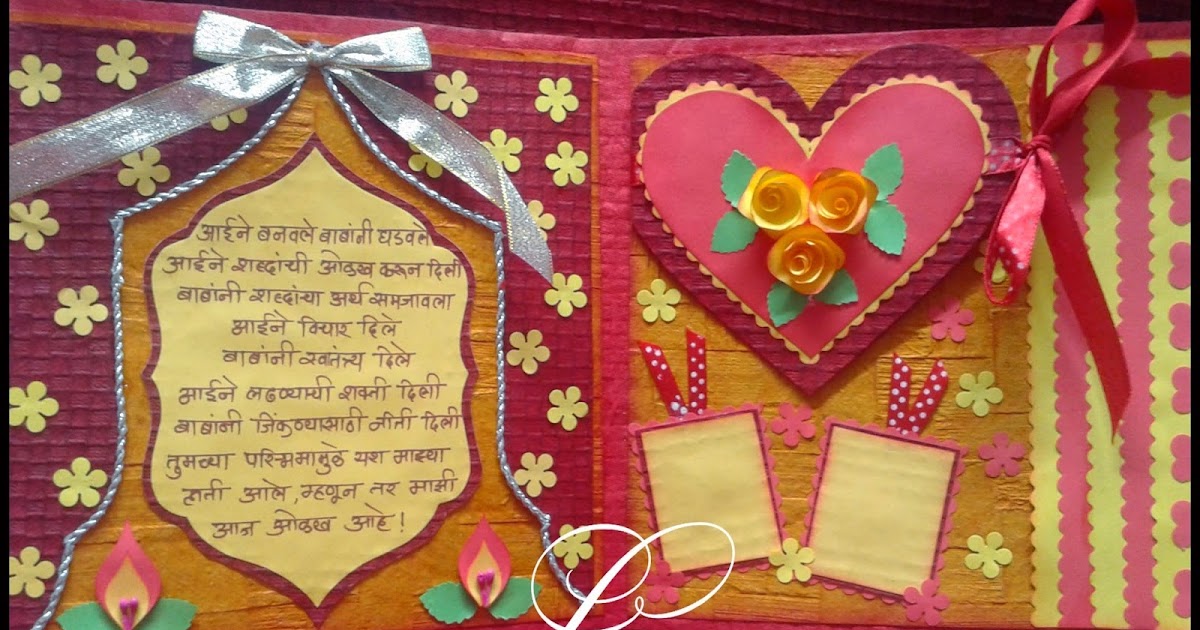 आईने बनवले बाबांनी घडवले
आईने शब्दांची ओळख करून दिली
बाबांनी शब्दांचा अर्थ समजावला
आईने विचार दिले
बाबांनी स्वातंत्र्य दिले
आईने लढण्याची शक्ती दिली
बाबांनी जिंकण्यासाठी नीती दिली
तुमच्या परिश्रमामुळे यश माझ्या
हाती आले, म्हणून तर माझी
आज ओळख आहे!